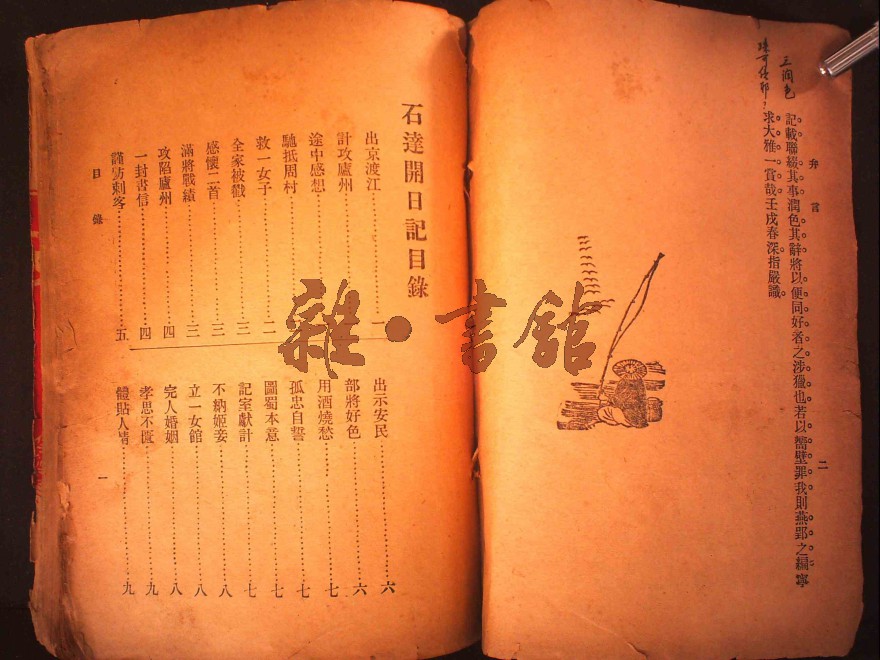 弁言
二
記載聯綴其事潤色其辭將以便同好者之涉獵也若以嚮壁罪我則燕郢之編寧
求大雅一賞哉壬戌春深指嚴識
石達開日記目錄
出京渡江⋯⋯一
計攻廬州
途中感想
馳抵周村
救一女子⋯⋯二
全家被戮⋯⋯三
感懷二首⋯⋯三
滿將戰績⋯⋯三
攻陷廬州⋯⋯四
一封書信⋯⋯四
謹防刺客⋯⋯五
出示安民⋯⋯六
部將好色⋯⋯六
用酒燒愁⋯⋯七
孤忠自誓⋯⋯七
圖蜀本意⋯⋯七
記室獻計⋯⋯七
不納姬妾⋯⋯八
立一女館⋯⋯八
完人婚姻⋯⋯八
孝思不匱⋯⋯九
體貼人情⋯⋯九
目錄
一
雜·書館